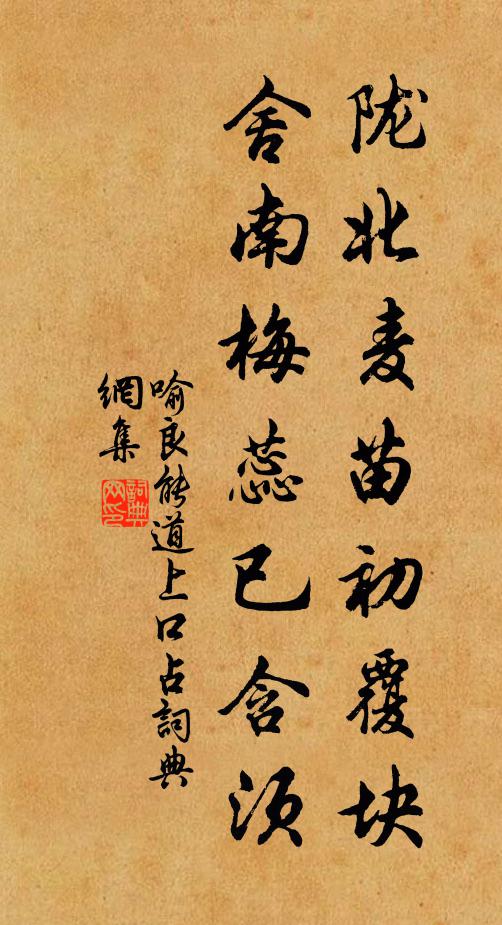 陇北麦苗初覆块
舍南梅蕊已含须
喻良能道上口占詞典
網集
詞典网印